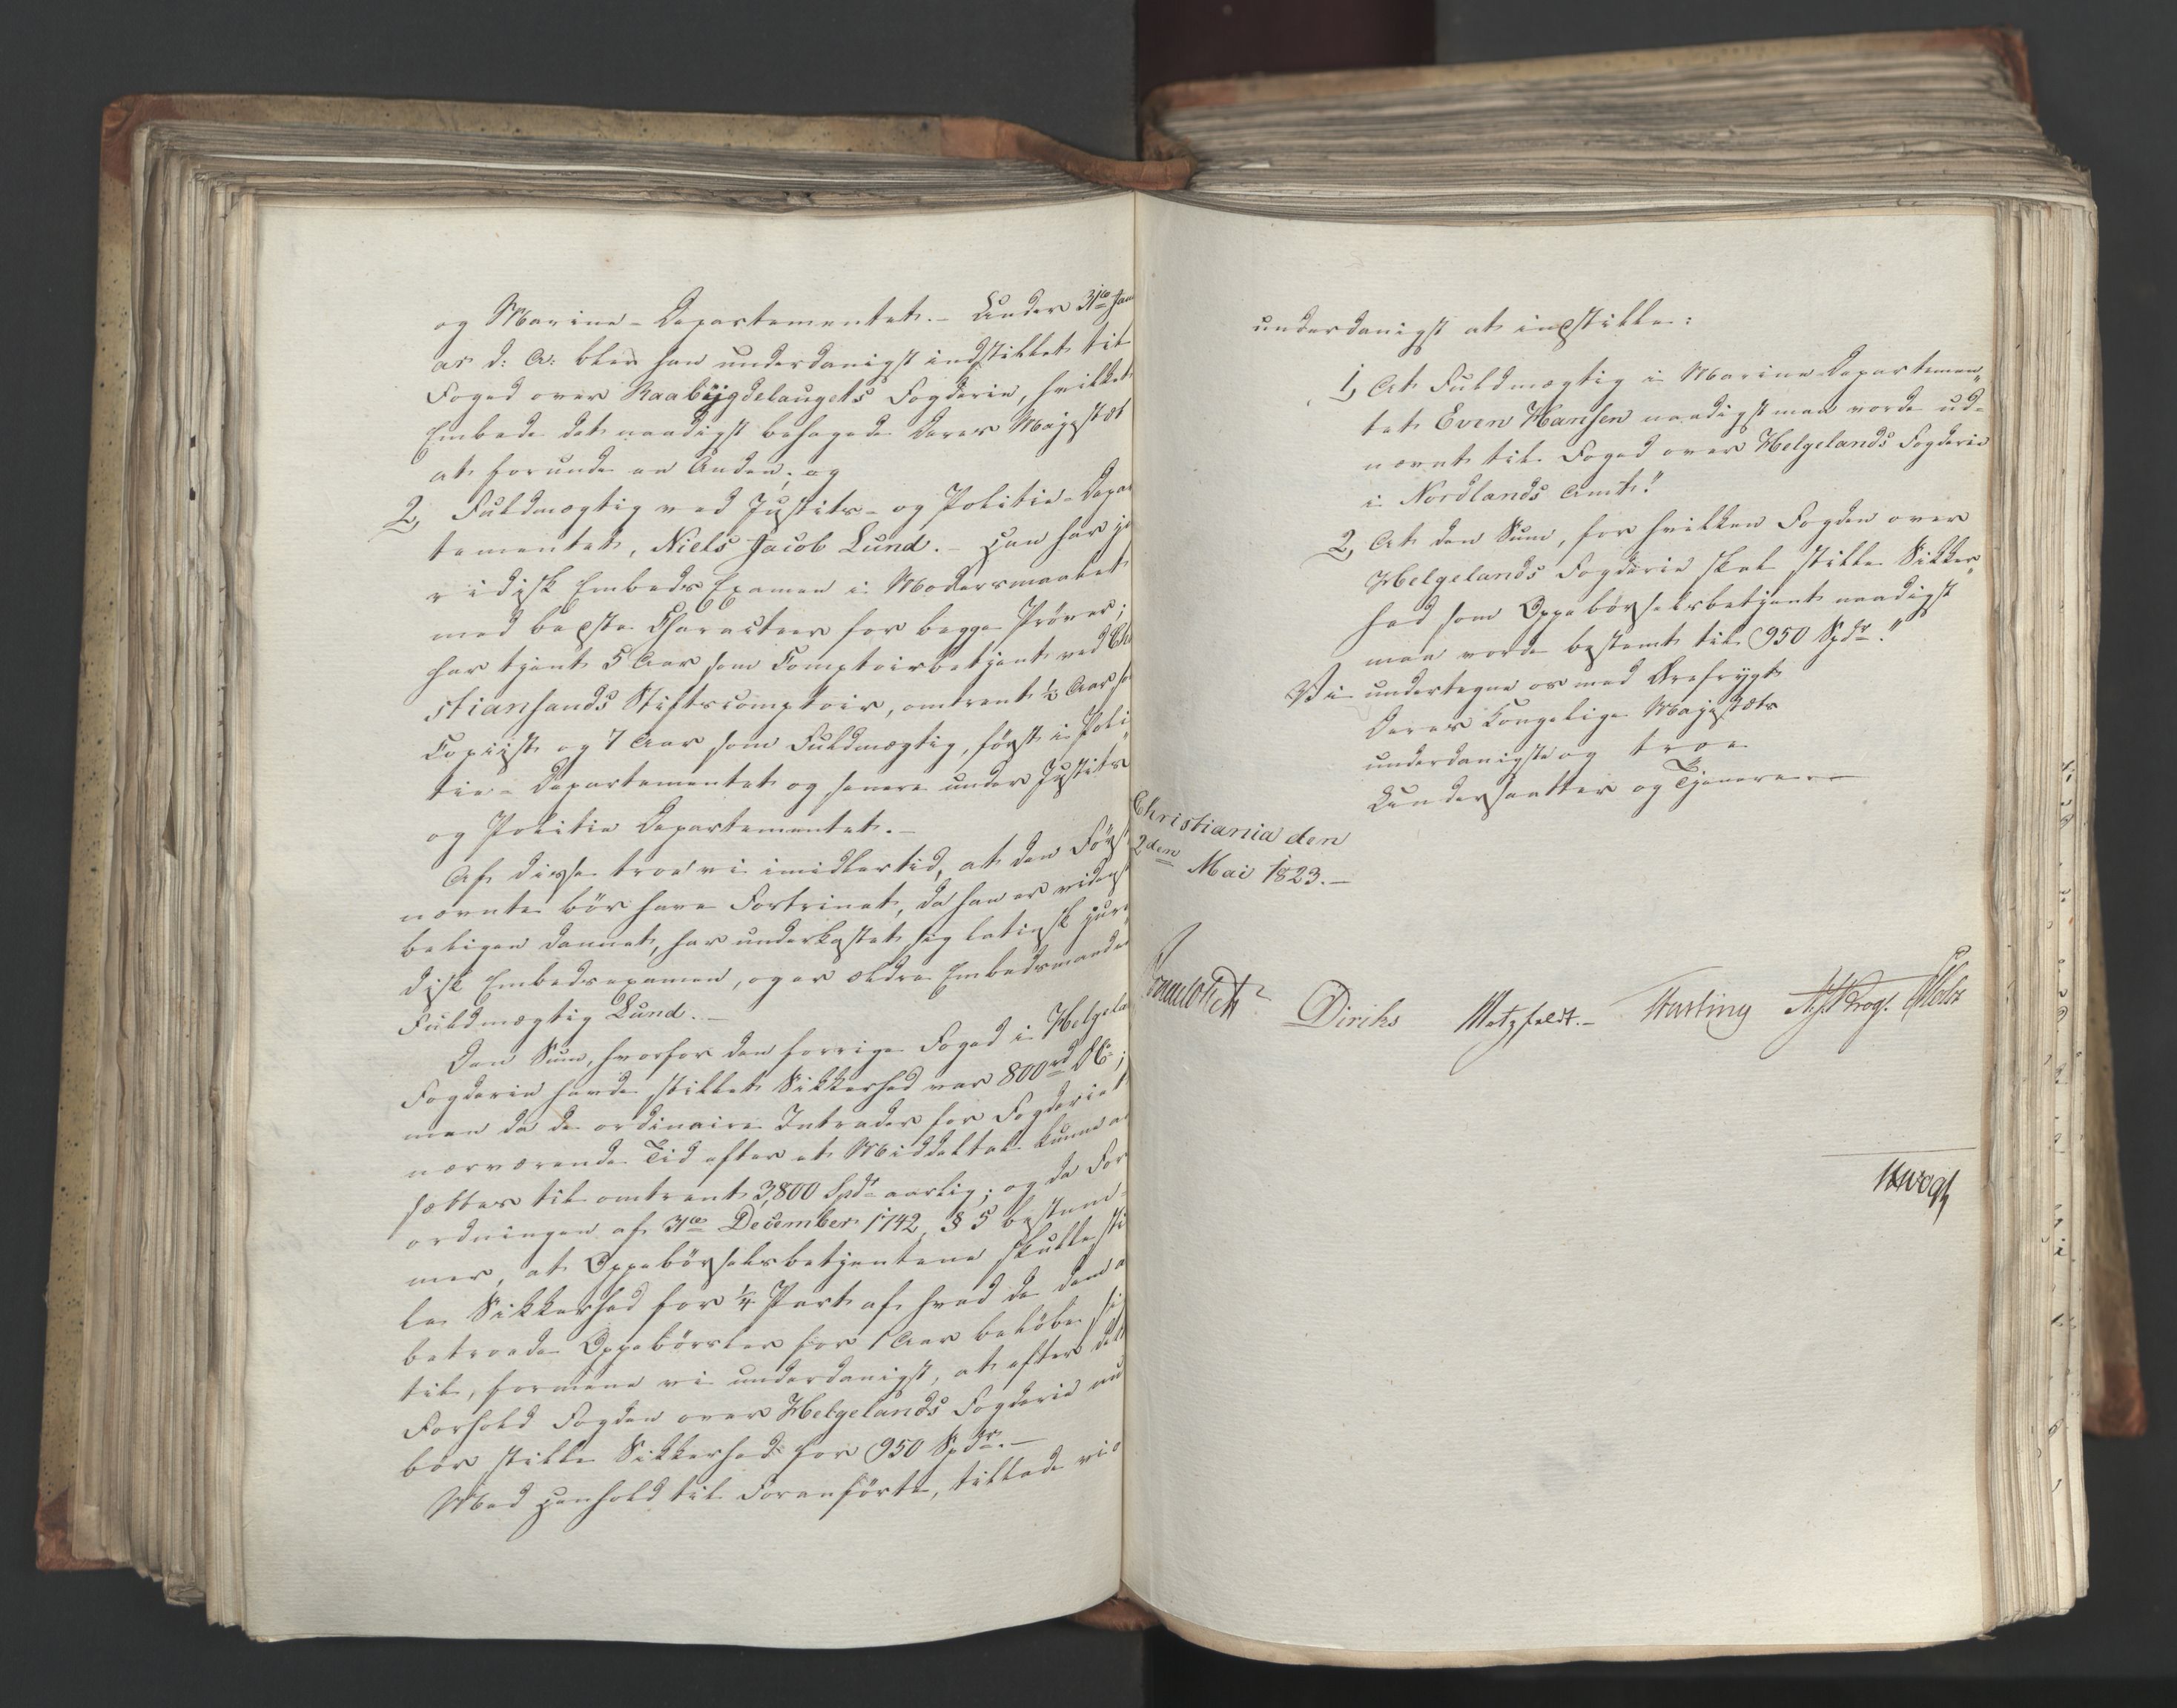 og Marine-Departementet. – Under 31te Janu
ar d: A: blev han underdanigst indstillet til
Foged over Raabÿgdelaugets Fogderie, hvilket
Embede det naadigst behagede Deres Majestæt
at forunde en Anden; og
2, Fuldmægtig ved Justits- og Politie-Depar
tementet, Niels Jacob Lund. – Han har ju
ridisk Embeds Examen i Modersmaalet
med bedste Characteer for begge Prøver;
har tjent 5 Aar som Comptoirbetjent ved Chri
stiansands Stiftscomptoir, omtrent ½ Aar som
Copiist og 7 Aar som Fuldmægtig, først i Poli
tie-Departementet og senere under Justits
og Politie Departementet. –
Af disse troe vi imidlertid, at den Først
nævnte bör have Fortrinet, da han er vidensk
beligen dannet, har underkastet sig latinsk juri
disk Embedsexamen, og er ældre Embedsmand end
Fuldmægtig Lund. –
Den Sum, hvorfor den forrige Foged i Helgela
Fogderie havde stillet Sikkerhed var 800rd DC;
men da de ordinaire Intrader for Fogderiet
nærværende Tid efter et Middeltal kunne an
sættes til omtrent 3,800 Spdr aarlig; og da For
ordningen af 31te December 1742 § 5 bestem-
mer, at Oppebörselsbetjentene skulle stil
le Sikkerhed for ¼ Part af hvad de dem a
betroede Oppebörsler for 1 Aar belöbe sig
til, formene vi underdanigst, at efter dette
Forhold Fogden over Helgelands Fogderie nu
bör stille Sikkerhed for 950 Spdr. –
Med Henhold til Foranförte, tillade vi os
underdanigst at indstille:
1, At Fuldmægtig i Marine-Departemen„
tet Even Hansen naadigst maa vorde ud-
nævnt til Foged over Helgelands Fogderie
i Nordlands Amt."
2, At den Sum, for hvilken Fogden over
Helgelands Fogderie skal stille Sikker„
hed som Oppebörselsbetjent naadigst
maa vorde bestemt til 950 Spdr."
Vi undertegne os med Ærefrygt
Deres Kongelige Majestæts
underdanigste og troe
Undersaatter og Tjenere. –
Christiania den
2den Mai 1823. –
Diriks Motzfeldt. – Fasting Holst